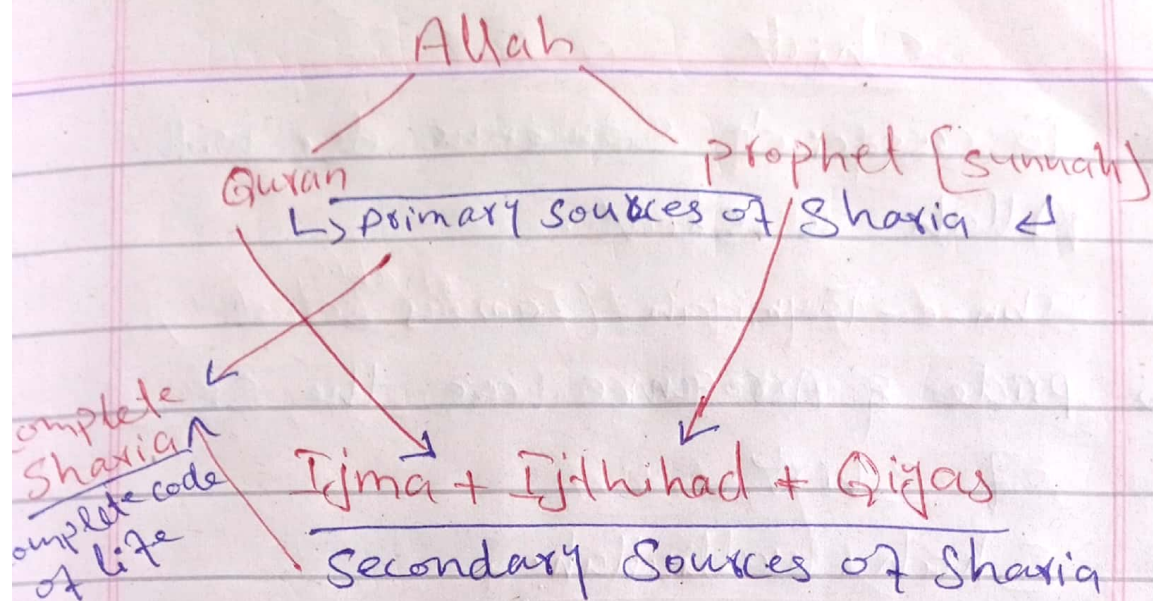 Allah
Quran
prophet [sunnah]
↳ primary sources of Sharia ↲
omplete
Sharia
omplete code
of life
Ijma + Ijthihad + Qiyas
Secondary Sources of Sharia